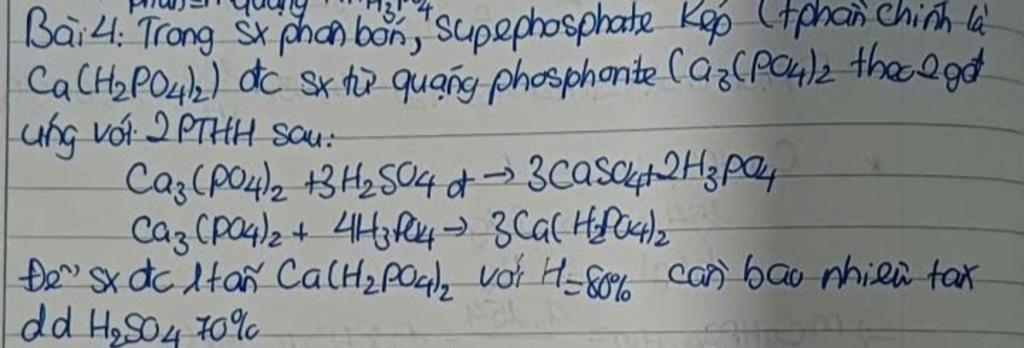 Bài 4: Trong sx phân bón, supephosphate kép (tphần chính là
Ca(H2PO4)2) đc sx từ quặng phosphorite Ca3(PO4)2 theo 2gđ
ứng với 2PTHH sau:
Ca3(PO4)2 +3H2SO4 đ → 3CaSO4+2H3PO4
Ca3(PO4)2 + 4H3PO4 → 3Ca(H2PO4)2
Để sx đc 1tấn Ca(H2PO4)2 với H=80% cần bao nhiêu
dd H2SO4 70%